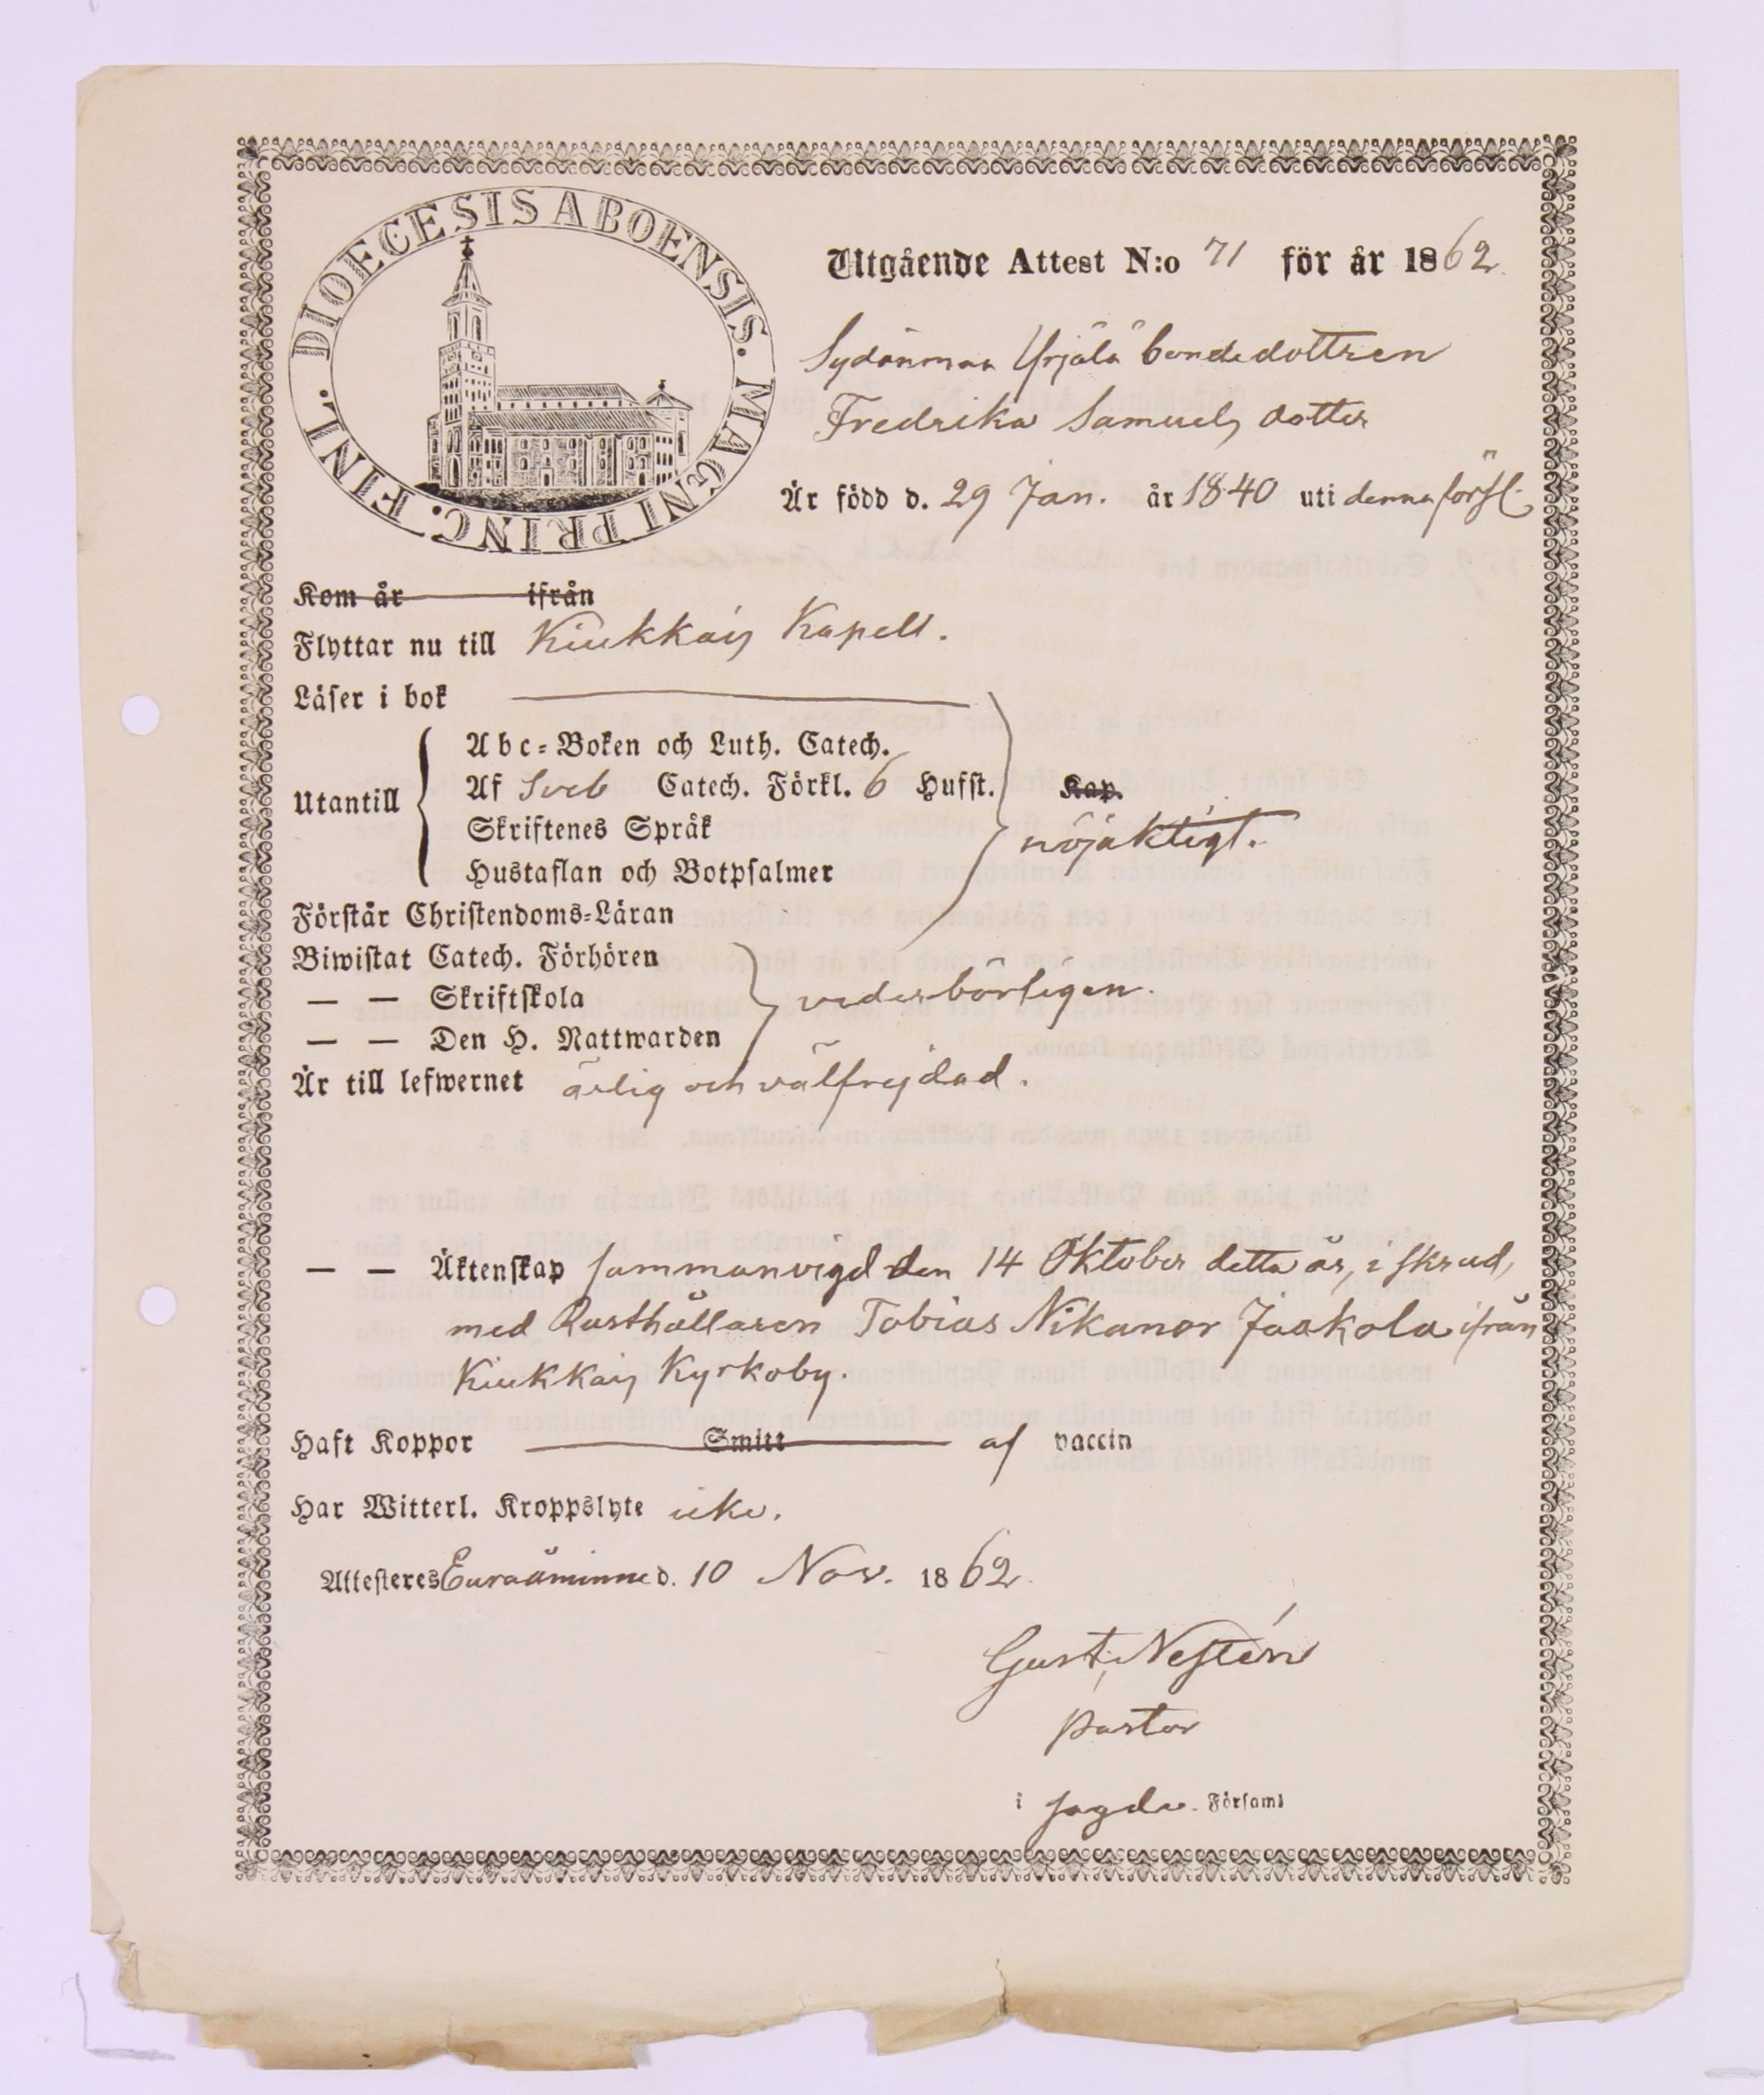 DIOECESIS ABOENSIS. MAGNI PRINC. FINL.
Utgående Attest N:o 71 för år 1862.
Sydänmaa Yrjälä bondedottren
Fredrika Samuels dotter
Är född d. 29 Jan. år 1840 uti denna förs:l.
Kom år ifrån
Flyttar nu till Kiukkais Kapell.
Läser i bok
Abc-Boken och Luth. Catech.
Utantill Af Sveb Catech. Förkl. 6 Hufst. Kap.
Skriftenes Språk nöjaktigt.
Hustaflan och Botpsalmer
Förstår Christendoms-Läran
Biwistat Catech. Förhören
— — Skriftskola vederbörligen.
— — Den H. Nattwarden
Är till lefwernet ärlig och välfrejdad.
— — Äktenskap sammanvigd den 14 Oktober detta år, i skrud,
med Rusthållaren Tobias Nikanor Jaakola ifrån
Kiukkais Kyrkoby.
Haft Koppor Smitt af vaccin
Har Witterl. Kroppslyte icke.
Attesteres Euraåminne d. 10 Nov. 1862.
Gust. Nestén
Pastor
i sagde. Församl